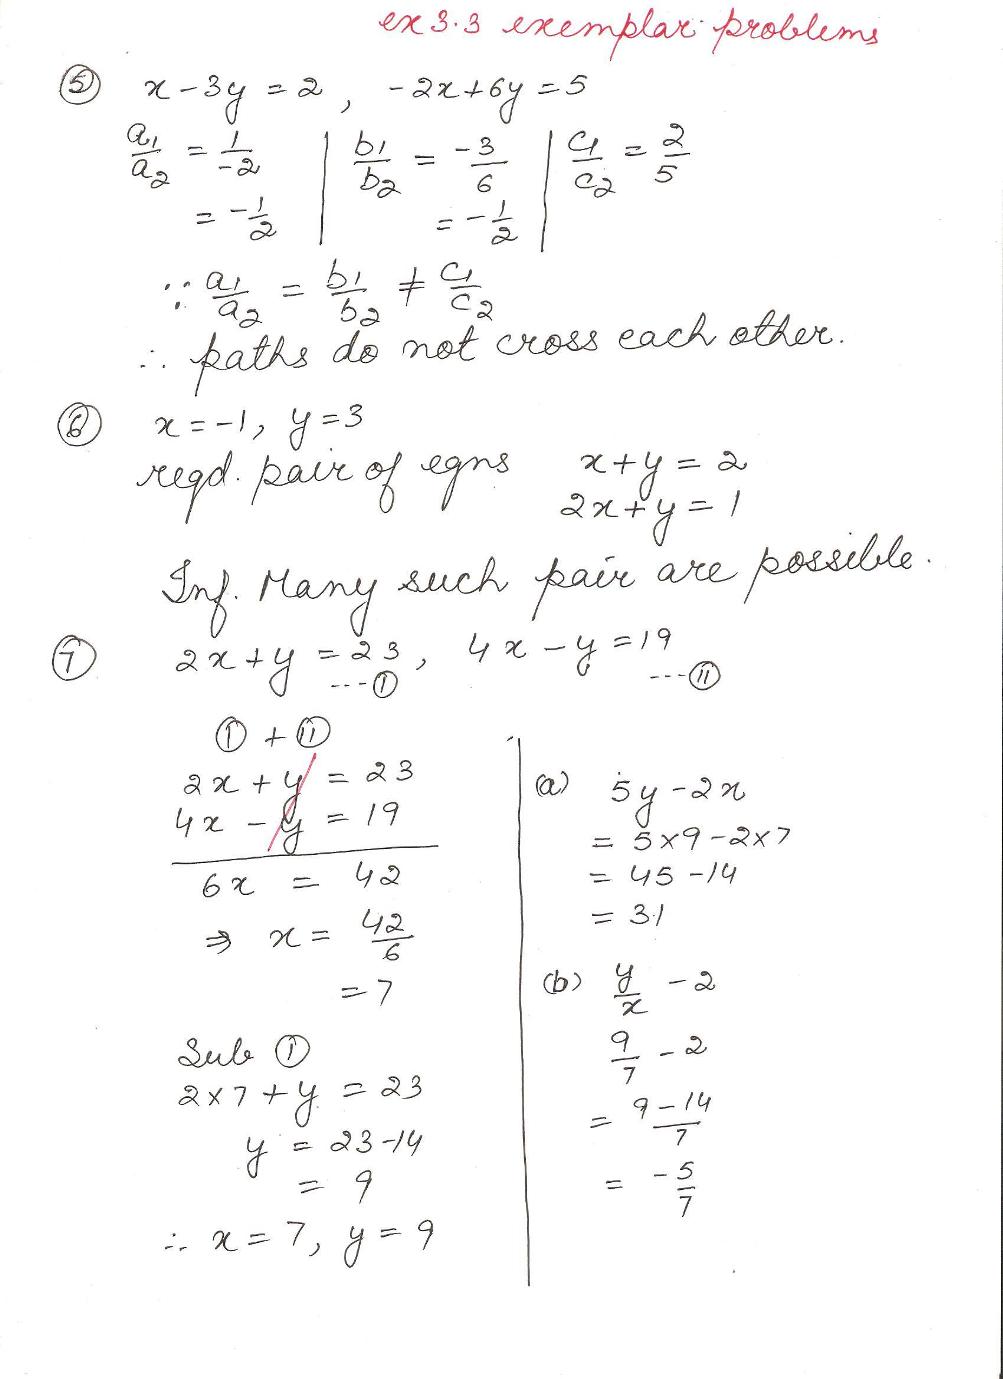 ex 3.3 exemplar problems
⑤ x - 3y = 2 , -2x + 6y = 5
a₁/a₂ = 1/-2 | b₁/b₂ = -3/6 | c₁/c₂ = 2/5
= -1/2 | = -1/2
∵ a₁/a₂ = b₁/b₂ ≠ c₁/c₂
∴ paths do not cross each other.
⑥ x = -1, y = 3
reqd. pair of eqns x + y = 2
2x + y = 1
Inf. Many such pair are possible.
⑦ 2x + y = 23, 4x - y = 19
---Ⓘ ---ⓘⓘ
Ⓘ + ⓘⓘ
2x + y = 23
4x - y = 19
6x = 42
⇒ x = 42/6
= 7
Sub Ⓘ
2×7 + y = 23
y = 23-14
= 9
∴ x = 7, y = 9
(a) 5y - 2x
= 5×9 - 2×7
= 45 - 14
= 31
(b) y/x - 2
9/7 - 2
= 9-14/7
= -5/7